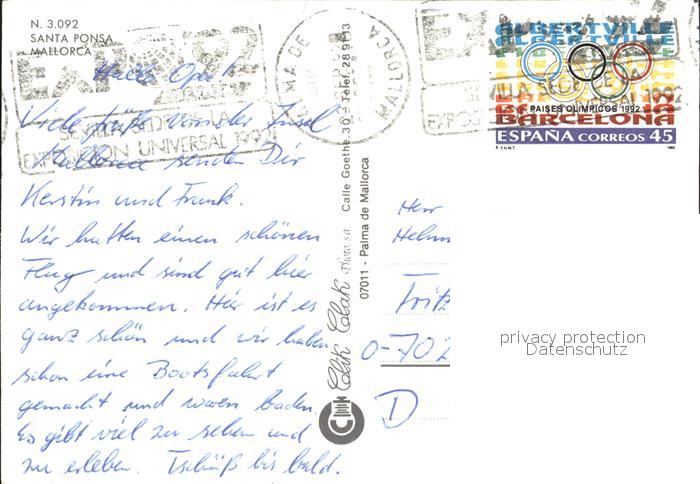 N. 3.092
SANTA PONSA
MALLORCA
Hallo Opa!
Viele Grüße von der Insel
Mallorca senden Dir
Kerstin und Frank.
Wir hatten einen schönen
Flug und sind gut hier
angekommen. Hier ist es
ganz schön und wir haben
schon eine Bootsfahrt
gemacht und waren baden.
Es gibt viel zu sehen und
zu erleben. Tschüß bis bald.
EXPO 92
SEVILLA
EXPOSICION UNIVERSAL 1992
MALLORCA
Clik Clak Photo, s.a. Calle Goethe, 30 - Telef. 28 91 33
07011 - Palma de Mallorca
ALBERTVILLE
ALBERTVILLE
PAISES OLIMPICOS 1992
BARCELONA
ESPAÑA CORREOS 45
F.N.M.T. 1992
SEVILLA
UNIVERSAL 1992
Herr
Helm
Fritz
O-702
D
privacy protection
Datenschutz